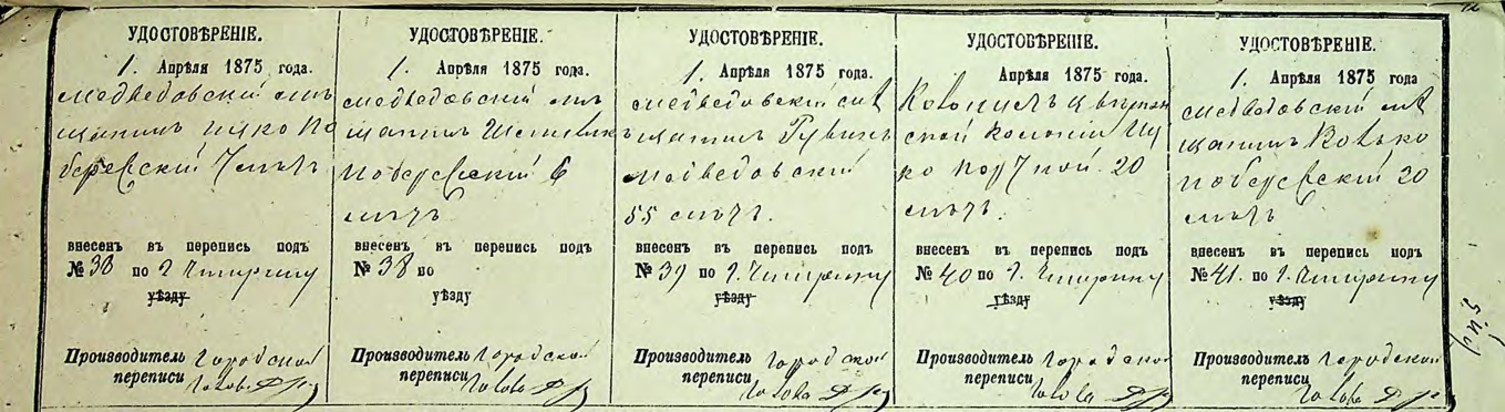 УДОСТОВѢРЕНІЕ.
1. Апрѣля 1875 года.
медведовскій мѣ
щанинъ Ицко По
березскій 7 лѣтъ
внесенъ въ перепись подъ
№ 38 по г. Чигирину
уѣзду
Производитель городской
переписи голова
УДОСТОВѢРЕНІЕ.
1. Апрѣля 1875 года.
медведовскій мѣ
щанинъ
Поберезскій 6
лѣтъ
внесенъ въ перепись подъ
№ 38 по
уѣзду
Производитель городской
переписи голова
УДОСТОВѢРЕНІЕ.
1. Апрѣля 1875 года.
медведовскій мѣ
щанинъ Рувинъ
Медведовскій
55 лѣтъ.
внесенъ въ перепись подъ
№ 39 по г. Чигирину
уѣзду
Производитель городской
переписи голова
УДОСТОВѢРЕНІЕ.
Апрѣля 1875 года.
Колонистъ
ской колоніи Иц
ко 20
лѣтъ.
внесенъ въ перепись подъ
№ 40 по г. Чигирину
уѣзду
Производитель городской
переписи голова
УДОСТОВѢРЕНІЕ.
1. Апрѣля 1875 года
медведовскій мѣ
щанинъ Волько
Поберезскій 20
лѣтъ
внесенъ въ перепись подъ
№ 41. по г. Чигирину
уѣзду
Производитель городской
переписи голова